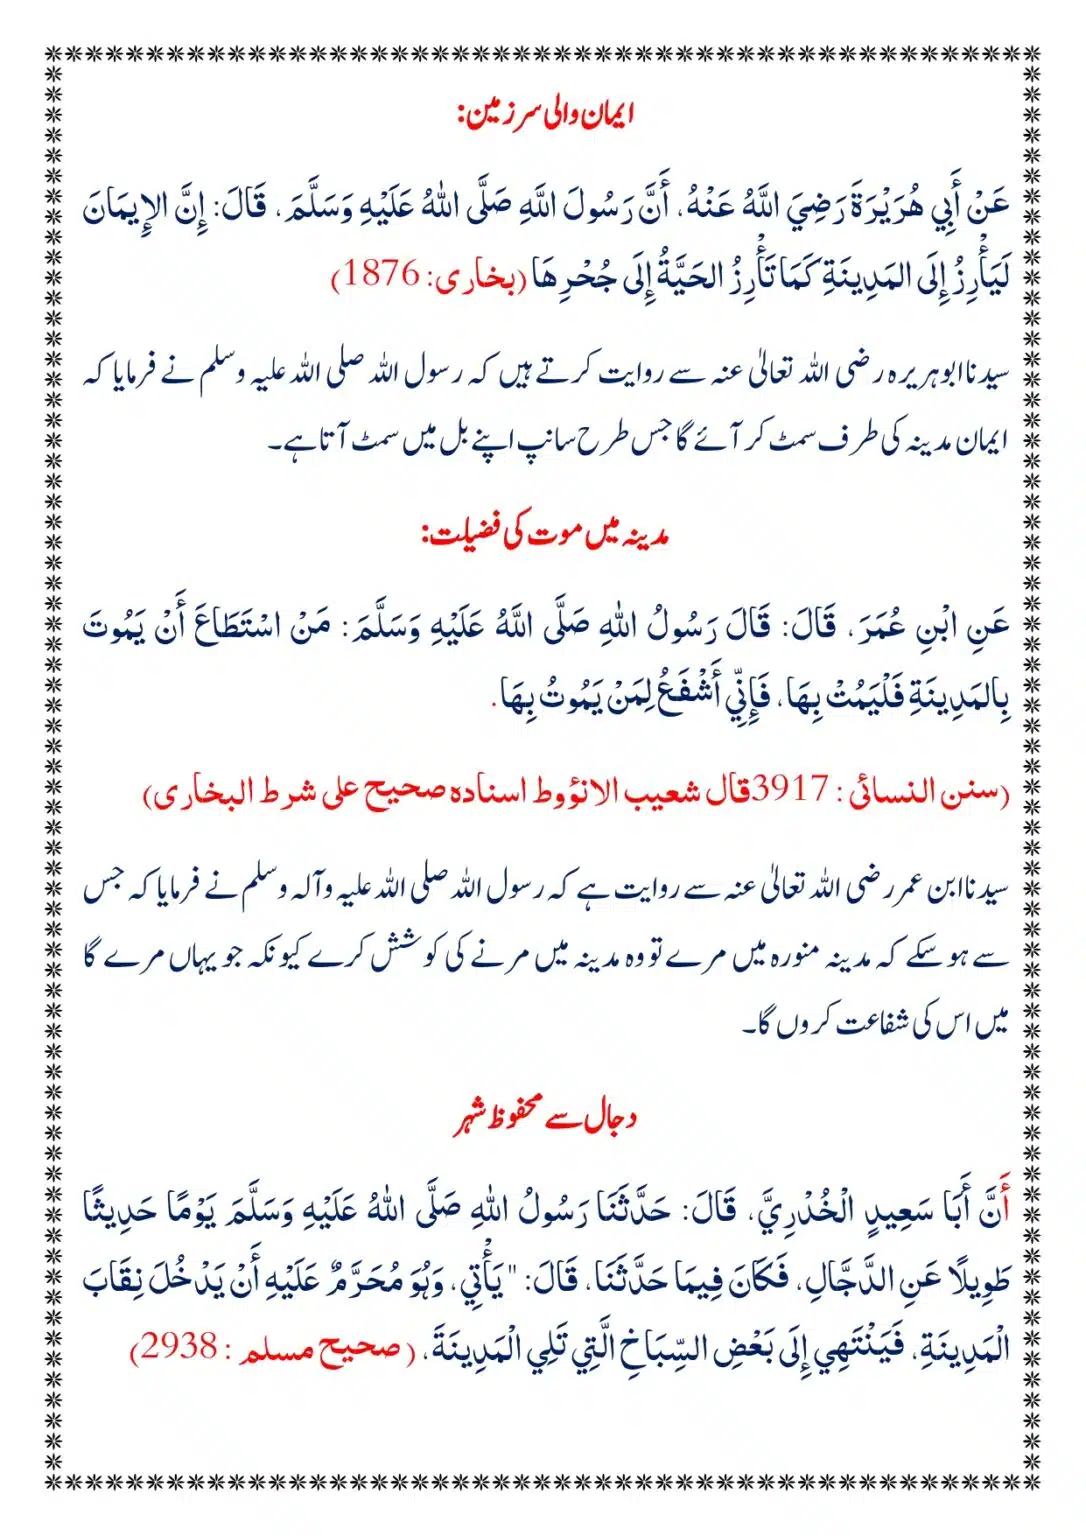 ایمان والی سرزمین:
عَنْ أَبِي هُرَيْرَةَ رَضِيَ اللَّهُ عَنْهُ، أَنَّ رَسُولَ اللَّهِ صَلَّى اللهُ عَلَيْهِ وَسَلَّمَ، قَالَ: إِنَّ الإِيمَانَ
لَيَأْرِزُ إِلَى المَدِينَةِ كَمَا تَأْرِزُ الحَيَّةُ إِلَى جُحْرِهَا (بخاری: 1876)
سیدنا ابوہریرہ رضی اللہ تعالیٰ عنہ سے روایت کرتے ہیں کہ رسول اللہ صلی اللہ علیہ وسلم نے فرمایا کہ
ایمان مدینہ کی طرف سمٹ کر آئے گا جس طرح سانپ اپنے بل میں سمٹ آتا ہے۔
مدینہ میں موت کی فضیلت:
عَنِ ابْنِ عُمَرَ، قَالَ: قَالَ رَسُولُ اللهِ صَلَّى اللَّهُ عَلَيْهِ وَسَلَّمَ: مَنْ اسْتَطَاعَ أَنْ يَمُوتَ
بِالمَدِينَةِ فَلْيَمُتْ بِهَا، فَإِنِّي أَشْفَعُ لِمَنْ يَمُوتُ بِهَا.
(سنن النسائی : 3917قال شعیب الانؤوط اسنادہ صحیح علی شرط البخاری)
سیدنا ابن عمر رضی اللہ تعالیٰ عنہ سے روایت ہے کہ رسول اللہ صلی اللہ علیہ وآلہ وسلم نے فرمایا کہ جس
سے ہو سکے کہ مدینہ منورہ میں مرے تو وہ مدینہ میں مرنے کی کوشش کرے کیونکہ جو یہاں مرے گا
میں اس کی شفاعت کروں گا۔
دجال سے محفوظ شہر
أَنَّ أَبَا سَعِيدٍ الْخُدْرِيَّ، قَالَ: حَدَّثَنَا رَسُولُ اللهِ صَلَّى اللهُ عَلَيْهِ وَسَلَّمَ يَوْمًا حَدِيثًا
طَوِيلًا عَنِ الدَّجَّالِ، فَكَانَ فِيمَا حَدَّثَنَا، قَالَ: " يَأْتِي، وَهُوَ مُحَرَّمٌ عَلَيْهِ أَنْ يَدْخُلَ نِقَابَ
الْمَدِينَةِ، فَيَنْتَهِي إِلَى بَعْضِ السِّبَاخِ الَّتِي تَلِي الْمَدِينَةَ، (صحیح مسلم : 2938)